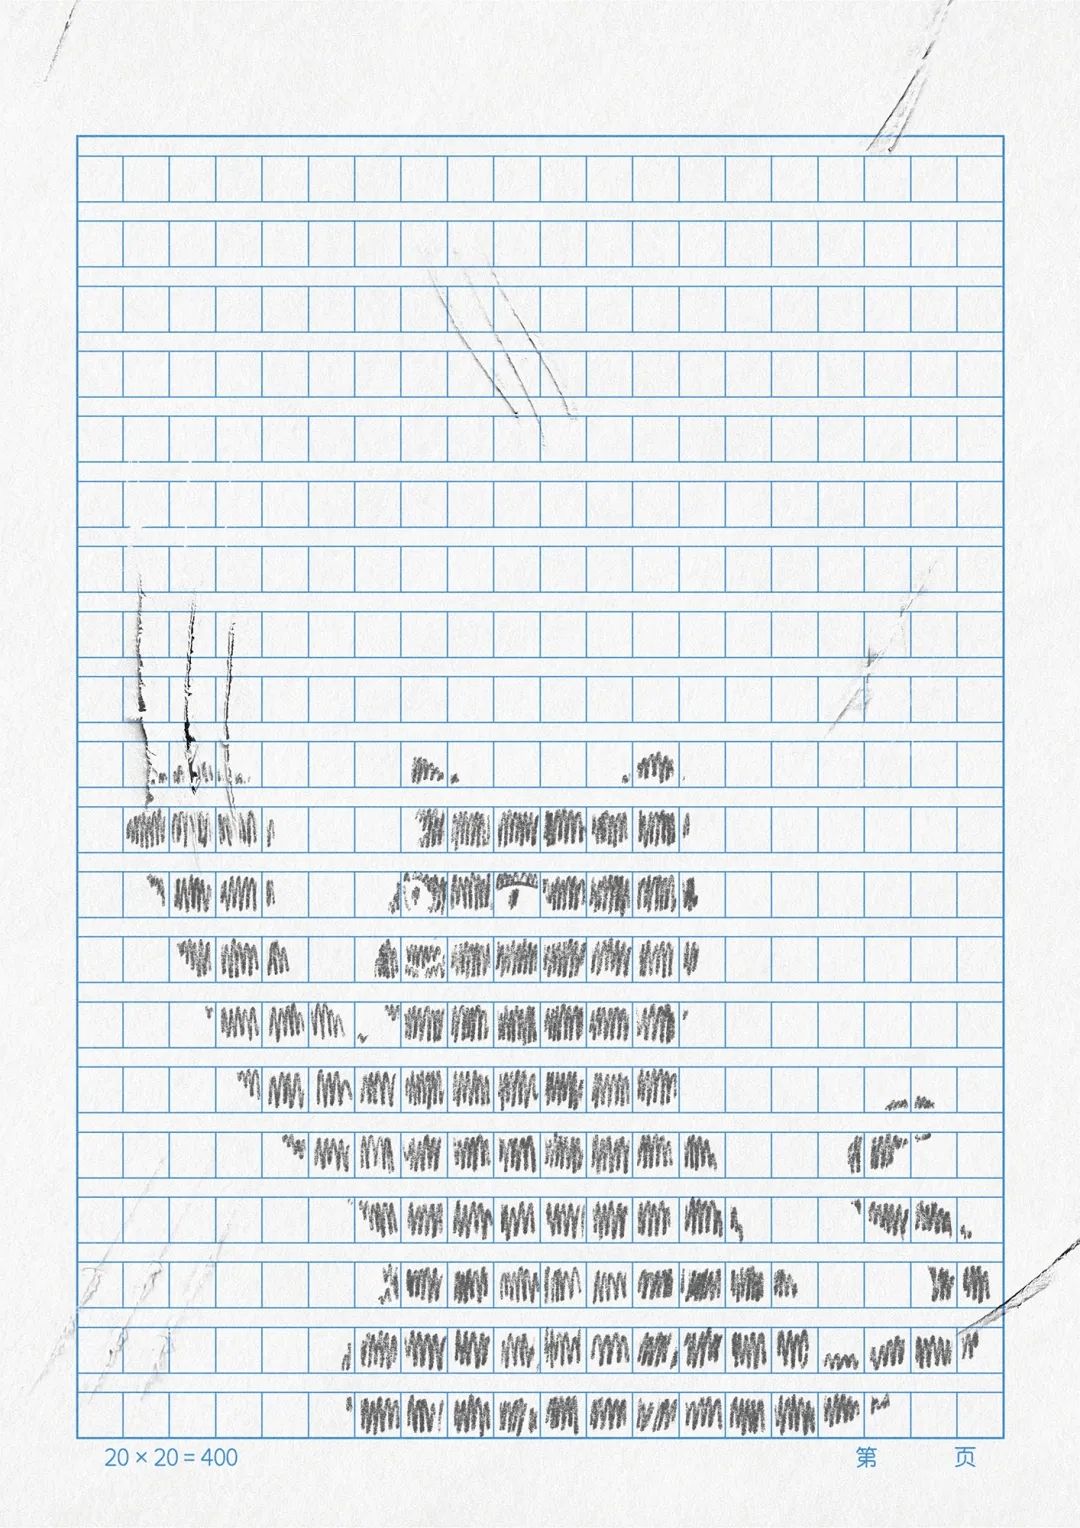 20 × 20 = 400 第 页